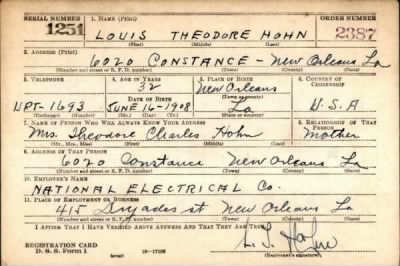 SERIAL NUMBER 1. NAME (Print) ORDER NUMBER
1251 LOUIS THEODORE HOHN 2387
(First) (Middle) (Last)
2. ADDRESS (Print)
6020 CONSTANCE - New Orleans La
(Number and street or R. F. D. number) (Town) (County) (State)
3. TELEPHONE 4. AGE IN YEARS 5. PLACE OF BIRTH 6. COUNTRY OF CITIZENSHIP
32 New Orleans
DATE OF BIRTH (Town or county)
UPT-1693 JUNE 16-1908 La. U.S.A
(Exchange) (Number) (Mo.) (Day) (Yr.) (State or country)
7. NAME OF PERSON WHO WILL ALWAYS KNOW YOUR ADDRESS 8. RELATIONSHIP OF THAT PERSON
Mrs. Theodore Charles Hohn Mother
(Mr., Mrs., Miss) (First) (Middle) (Last)
9. ADDRESS OF THAT PERSON
6020 Constance New Orleans La
(Number and street or R. F. D. number) (Town) (County) (State)
10. EMPLOYER'S NAME
NATIONAL ELECTRICAL Co.
11. PLACE OF EMPLOYMENT OR BUSINESS
415 Dryades st New Orleans La
(Number and street or R. F. D. number) (Town) (County) (State)
I AFFIRM THAT I HAVE VERIFIED ABOVE ANSWERS AND THAT THEY ARE TRUE.
REGISTRATION CARD
D. S. S. Form 1 16-17105 (over) L. T. Hohn
(Registrant's signature)